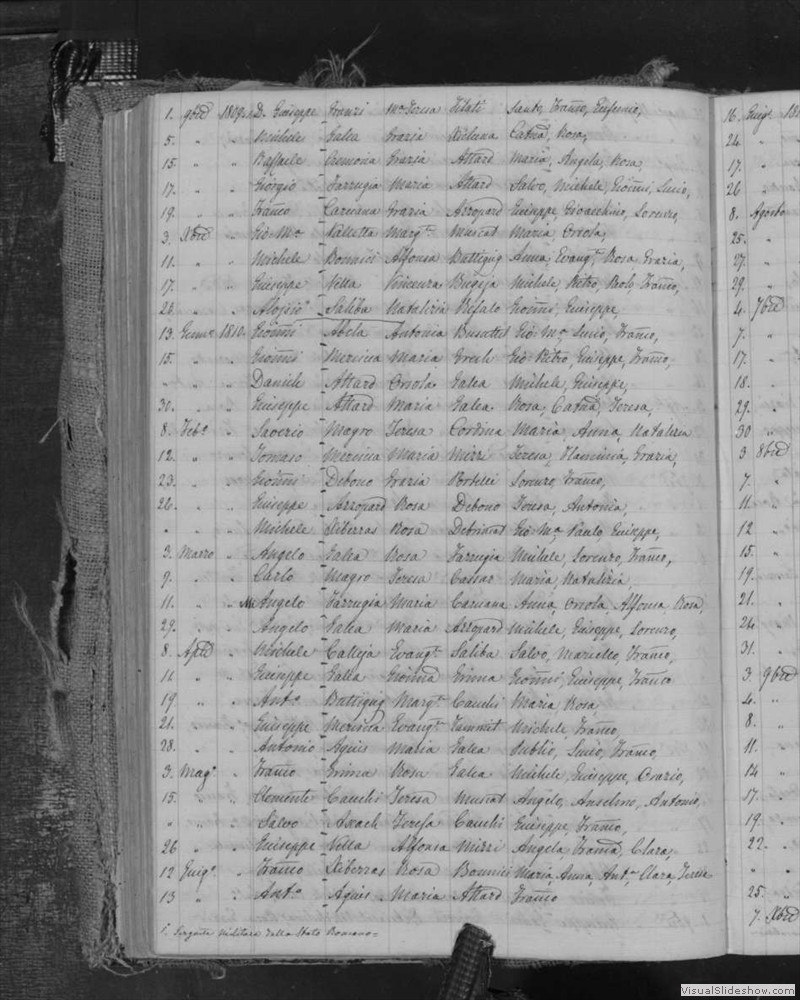 1. 9bre 1809. D. Giuseppe Franzi Ma Teresa Titati Santo, Franco, Eufemia,
5. " " Michele Galea Grazia Xicluna Catna, Rosa,
15. " " Raffaele Cremona Grazia Attard Maria, Angela, Rosa,
17. " " Giorgio Farrugia Maria Attard Salvo, Michele, Gionni, Lucio,
19. " " Franco Caruana Grazia Azzopard Giuseppe, Gioacchino, Lorenzo,
3. Xbre " Gio Ma Valletta Margta Muscat Maria, Orsola,
11. " " Michele Bonnici Alfonsa Buttigieg Anna, Evangta Rosa, Grazia,
17. " " Giuseppe Vella Vincenza Bugeja Michele, Pietro, Paolo, Franco,
26. " " Aloisio Saliba Natalizia Gionni, Giuseppe,
13. Genno 1810. Gionni Abela Antonia Busuttil Gio Ma Lucio, Franco,
15. " " Gionni Mercieca Maria Grech Gio Pietro, Giuseppe, Franco,
" " " Daniele Attard Orsola Galea Michele, Giuseppe,
30. " " Giuseppe Attard Maria Galea Rosa, Catna, Teresa,
8. Febo " Saverio Magro Teresa Cordina Maria, Anna, Natalizia
12. " " Tomaso Mercieca Maria Mizzi Teresa, Flaminia, Grazia,
23. " " Gionni Debono Grazia Portelli Lorenzo, Franco,
26. " " Giuseppe Azzopard Rosa Debono Teresa, Antonia,
" " " Michele Xiberras Rosa Gio Ma Paulo, Giuseppe,
3. Marzo " Angelo Galea Rosa Farrugia Michele, Lorenzo, Franco,
9. " " Carlo Magro Teresa Cassar Maria, Natalizia
11. " " Ml Angelo Farrugia Maria Caruana Anna, Orsola, Alfonsa, Rosa,
29. " " Angelo Galea Maria Azzopard Michele, Giuseppe, Lorenzo,
8. Aple " Michele Calleja Evangta Saliba Salvo, Marcello, Franco,
11. " " Giuseppe Galea Gionna Grima Gionni, Giuseppe, Franco
19. " " Anto Buttigieg Margta Cauchi Maria Rosa
21. " " Giuseppe Mercieca Evangta Tammit Michele, Franco,
28. " " Antonio Agius Maria Galea Publio, Lucio, Franco,
3. Mago " Franco Grima Rosa Galea Michele, Giuseppe, Orazio,
15. " " Clemente Cauchi Teresa Muscat Angelo, Anselmo, Antonio,
" " " Salvo Axach Teresa Cauchi Giuseppe, Franco,
26 " " Giuseppe Vella Alfonsa Mizzi Angela, Franca, Clara,
12 Giugo " Franco Xiberras Rosa Bonnici Maria, Anna, Anta Clara, Teresa
13 " " Anto Agius Maria Attard Franco
militare dello Stato Romano =
16. Giugo 181
24. "
17. "
26 "
8. Agosto
25. "
27. "
29. "
4. 7bre
7. "
17. "
18. "
29. "
30 "
3 8bre
7. "
11. "
12 "
15. "
19. "
21. "
24 "
31. "
3. 9bre
4. "
8. "
11. "
14 "
17. "
19. "
22. "
" "
25. "
7. Xbre
VisualSlideshow.com